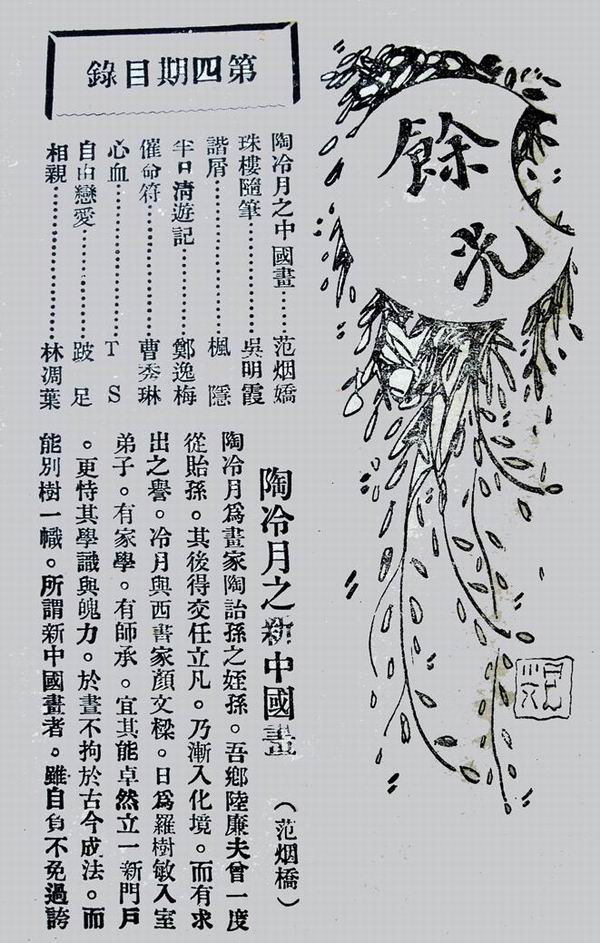 餘光
第四期目錄
陶冷月之中國畫……范烟嬌
珠樓隨筆……吳明霞
諧屑……楓隱
半日清遊記……鄭逸梅
催命符……曹秀琳
心血……T S
自由戀愛……跛足
相親……林凋葉
陶冷月之新中國畫 (范烟橋)
陶冷月爲畫家陶詒孫之姪孫。吾鄉陸廉夫曾一度
從貽孫。其後得交任立凡。乃漸入化境。而有求
出之譽。冷月與西書家顏文樑。日爲羅樹敏入室
弟子。有家學。有師承。宜其能卓然立一新門戶
。更恃其學識與魄力。於畫不拘於古今成法。而
能別樹一幟。所謂新中國畫者。雖自負不免過誇